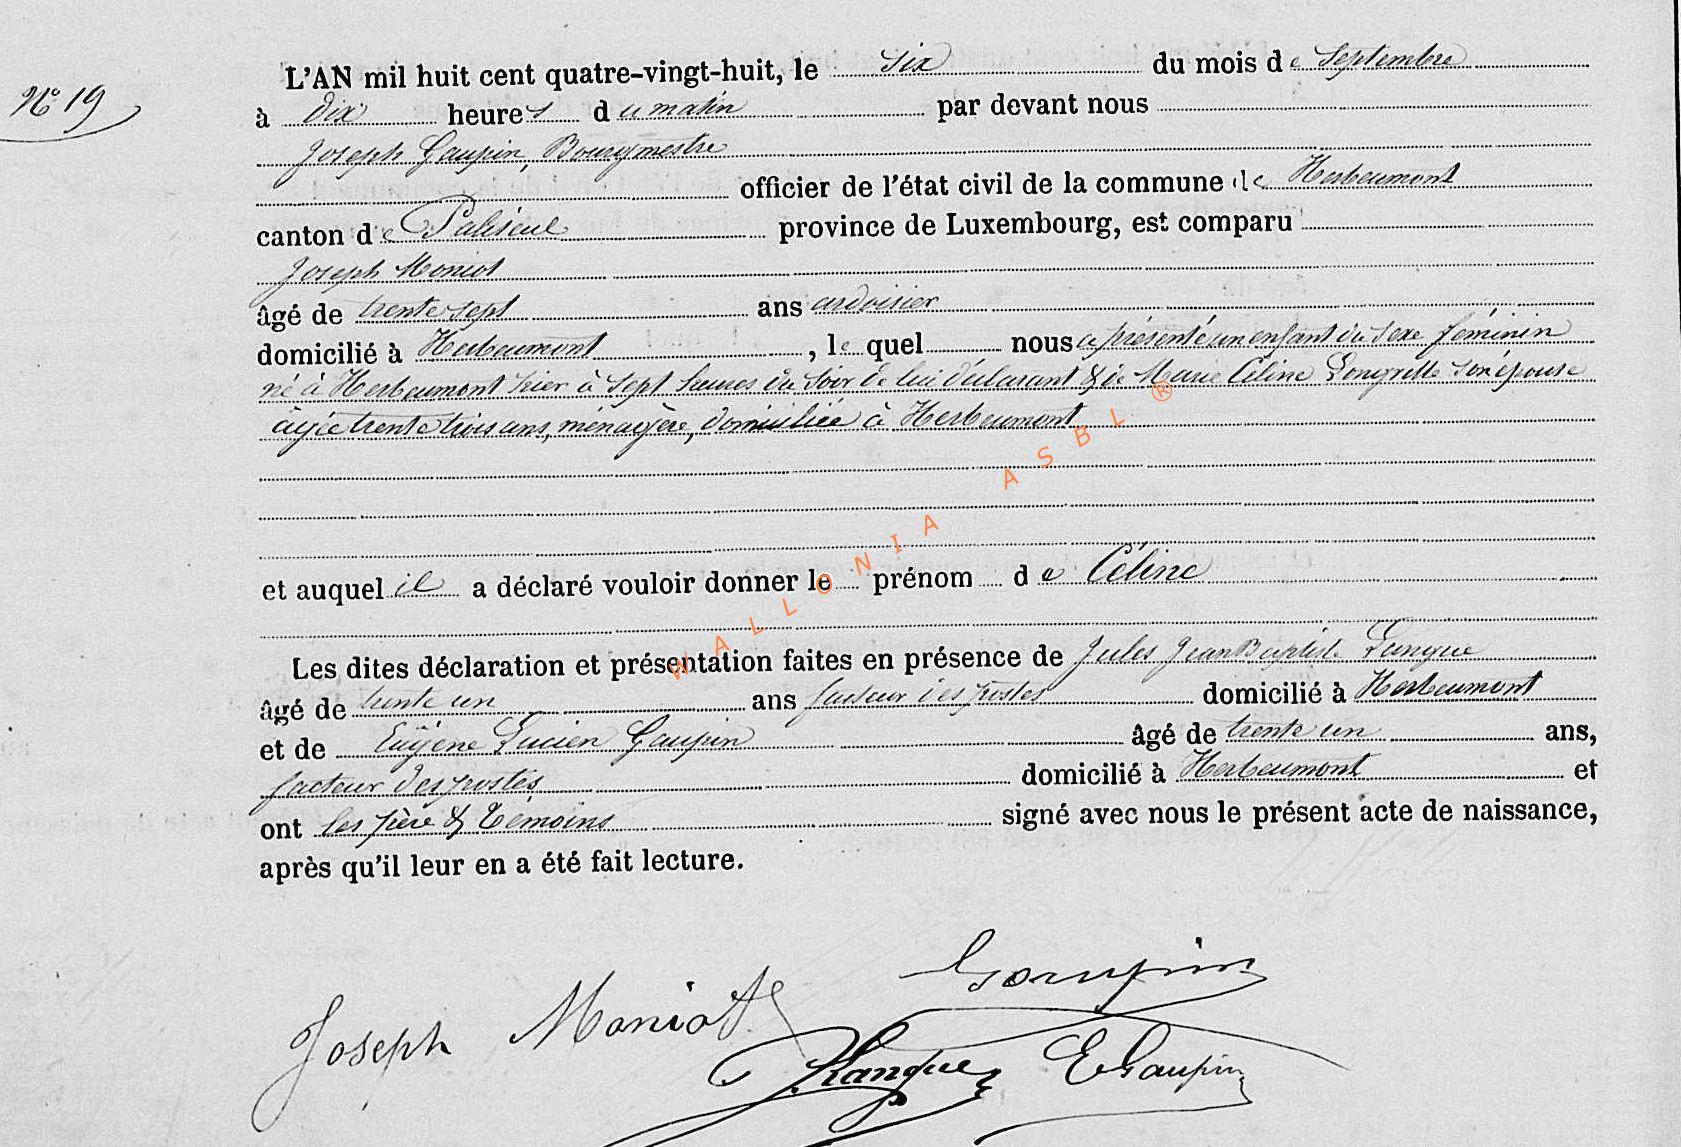 L'AN mil huit cent quatre-vingt-huit, le six du mois de Septembre
N° 19
à dix heures du matin par devant nous
Joseph Gaupin, Bourgmestre
officier de l'état civil de la commune de Herbeumont
canton de Paliseul province de Luxembourg, est comparu
Joseph Moniot
âgé de trente sept ans ardoisier
domicilié à Herbeumont, le quel nous a présenté un enfant du sexe féminin
né à Herbeumont hier à sept heures du soir de lui déclarant & de Marie Céline son épouse
âgée trente trois ans, ménagère, domiciliée à Herbeumont
et auquel il a déclaré vouloir donner le prénom de Céline
Les dites déclaration et présentation faites en présence de Jules Jean Baptiste Langue
âgé de trente un ans facteur des postes domicilié à Herbeumont
et de Eugène Lucien Gaupin âgé de trente un ans,
facteur des postes domicilié à Herbeumont et
ont les père & témoins signé avec nous le présent acte de naissance,
après qu'il leur en a été fait lecture.
WALLONIA ASBL ®
Gaupin
Joseph Moniot
JLangue EGaupin